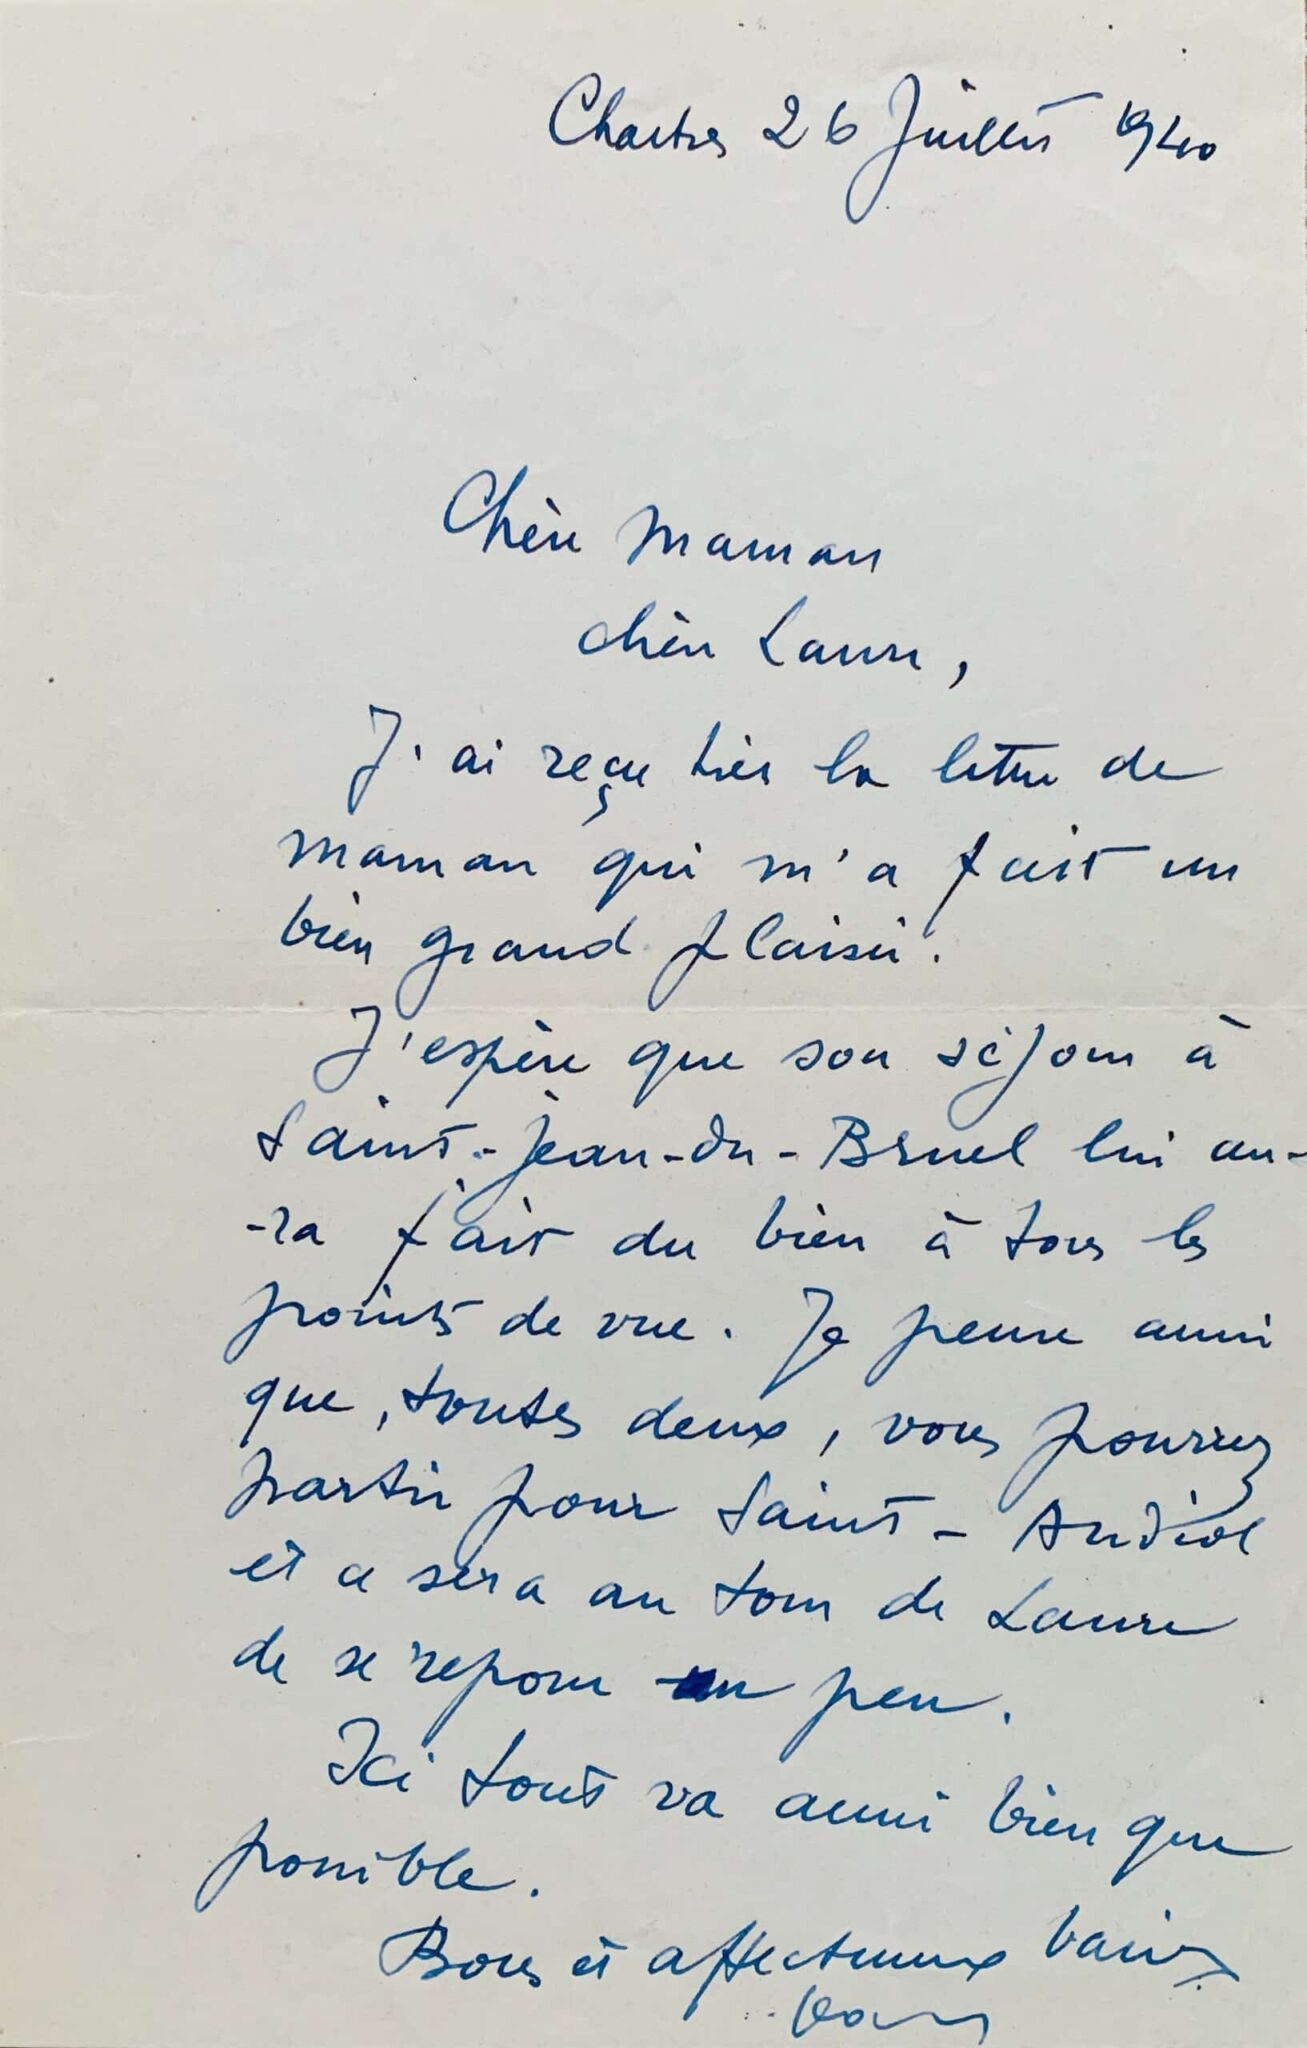 Chartres 26 Juillet 1940
Chère Maman
chère Laure,
J'ai reçu hier la lettre de
maman qui m'a fait un
bien grand plaisir.
J'espère que son séjour à
Saint-Jean-du-Bruel lui au-
-ra fait du bien à tous les
points de vue. Je pense aussi
que, toutes deux, vous pourrez
partir pour Saint-Andiol
et ce sera au tour de Laure
de se reposer un peu.
Ici tout va aussi bien que
possible.
Bons et affectueux baisers